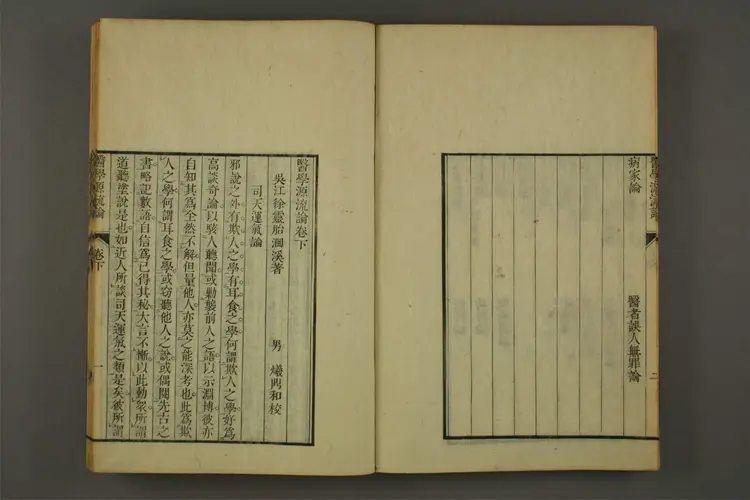 病家論
醫者誤人無罪論
二
醫學源流論卷下
吳江徐靈胎洄溪著
男 爔鼎和校
司天運氣論
邪說之外有欺人之學有耳食之學何謂欺人之學好爲
高談奇論以駭人聽聞或剿襲前人之語以示淵博彼亦
自知其爲全然不解但量他人亦莫之能深考也此爲欺
人之學何謂耳食之學或竊聽他人之說或偶閱先古之
書略記數語自信爲已得其秘大言不慚以此動衆所謂
道聽塗說是也如近人所談司天運氣之類是矣彼所謂
醫學源流論
卷下
一